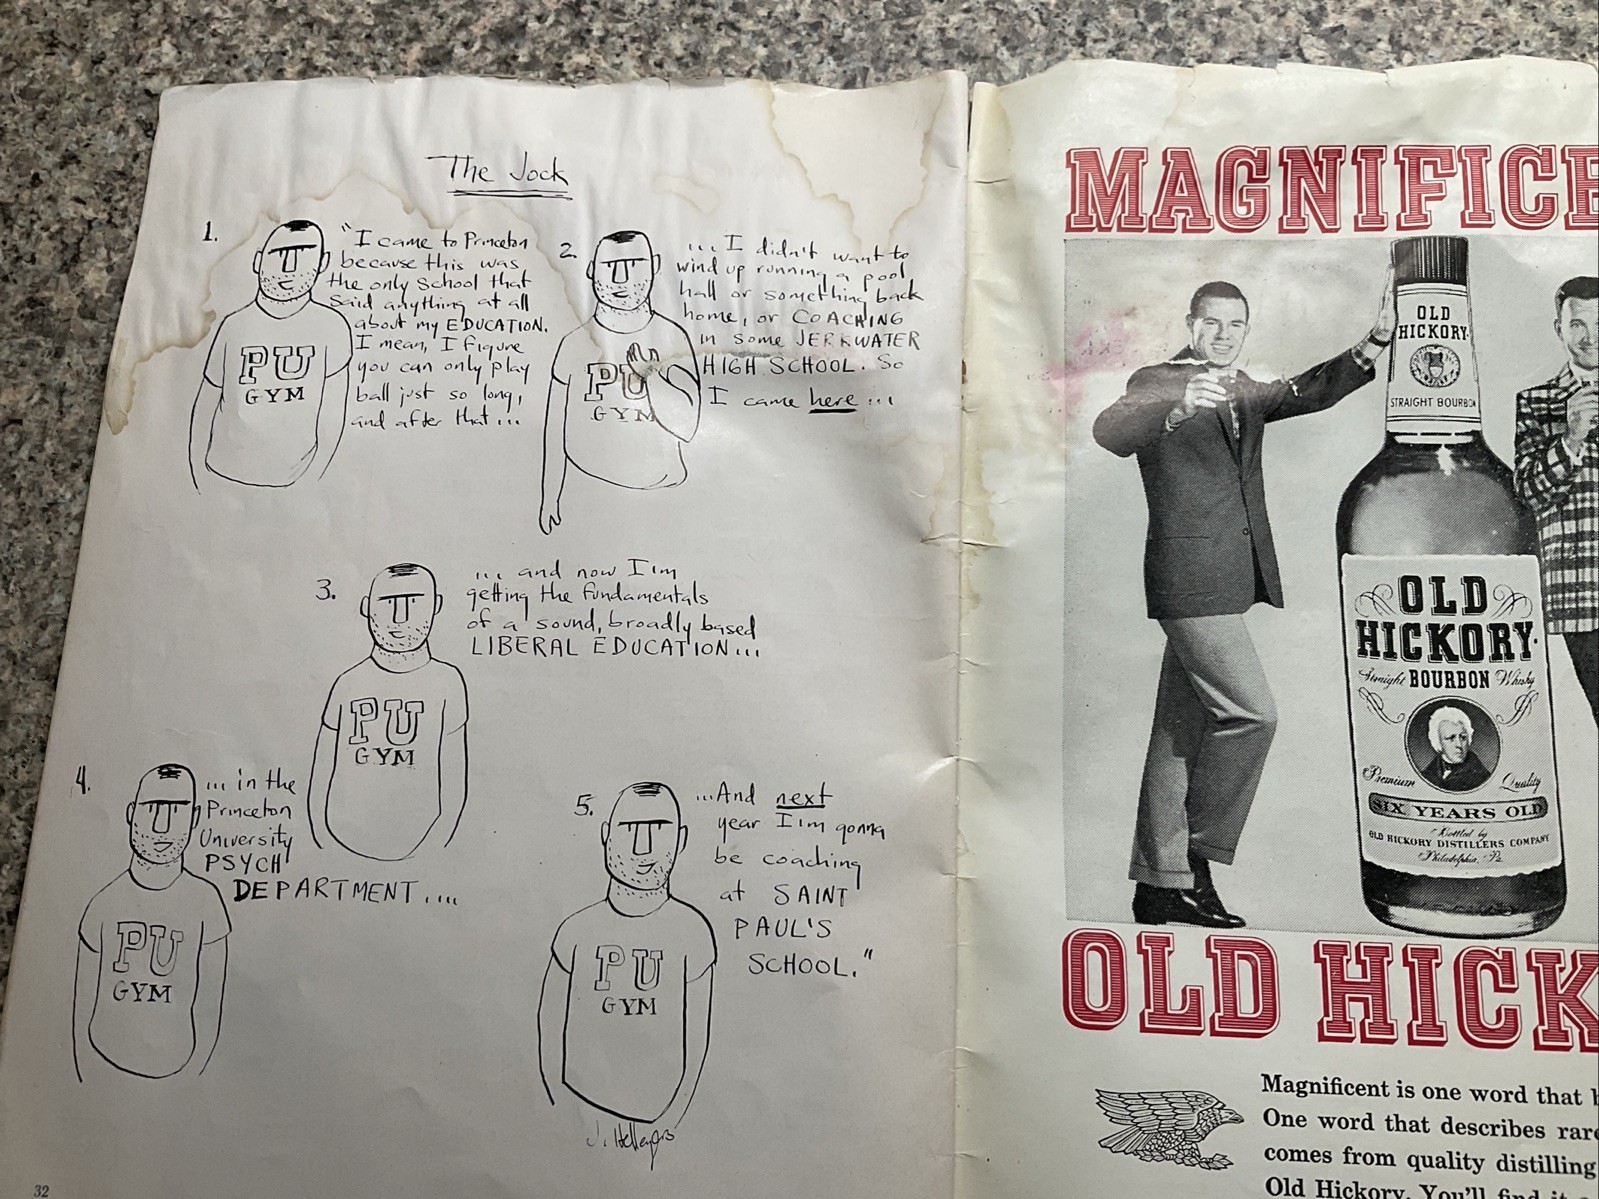 The Jock
1.
"I came to Princeton
because this was
the only School that
said anything at all
about my EDUCATION.
I mean, I figure
you can only play
ball just so long,
and after that...
PU
GYM
2.
... I didn't want to
wind up running a pool
hall or something back
home, or COACHING
in some JERKWATER
HIGH SCHOOL. So
I came here ...
PU
GYM
3.
... and now I'm
getting the fundamentals
of a sound, broadly based
LIBERAL EDUCATION...
PU
GYM
4.
... in the
Princeton
University
PSYCH
DEPARTMENT....
PU
GYM
5.
...And next
year I'm gonna
be coaching
at SAINT
PAUL'S
SCHOOL."
PU
GYM
32
MAGNIFICE
OLD
HICKORY
STRAIGHT BOURBON
OLD
HICKORY
Straight BOURBON Whisky
Premium Quality
SIX YEARS OLD
Bottled by
OLD HICKORY DISTILLERS COMPANY
Philadelphia, Pa.
OLD HICK
Magnificent is one word that
One word that describes rare
comes from quality distilling
Old Hickory. You'll find it